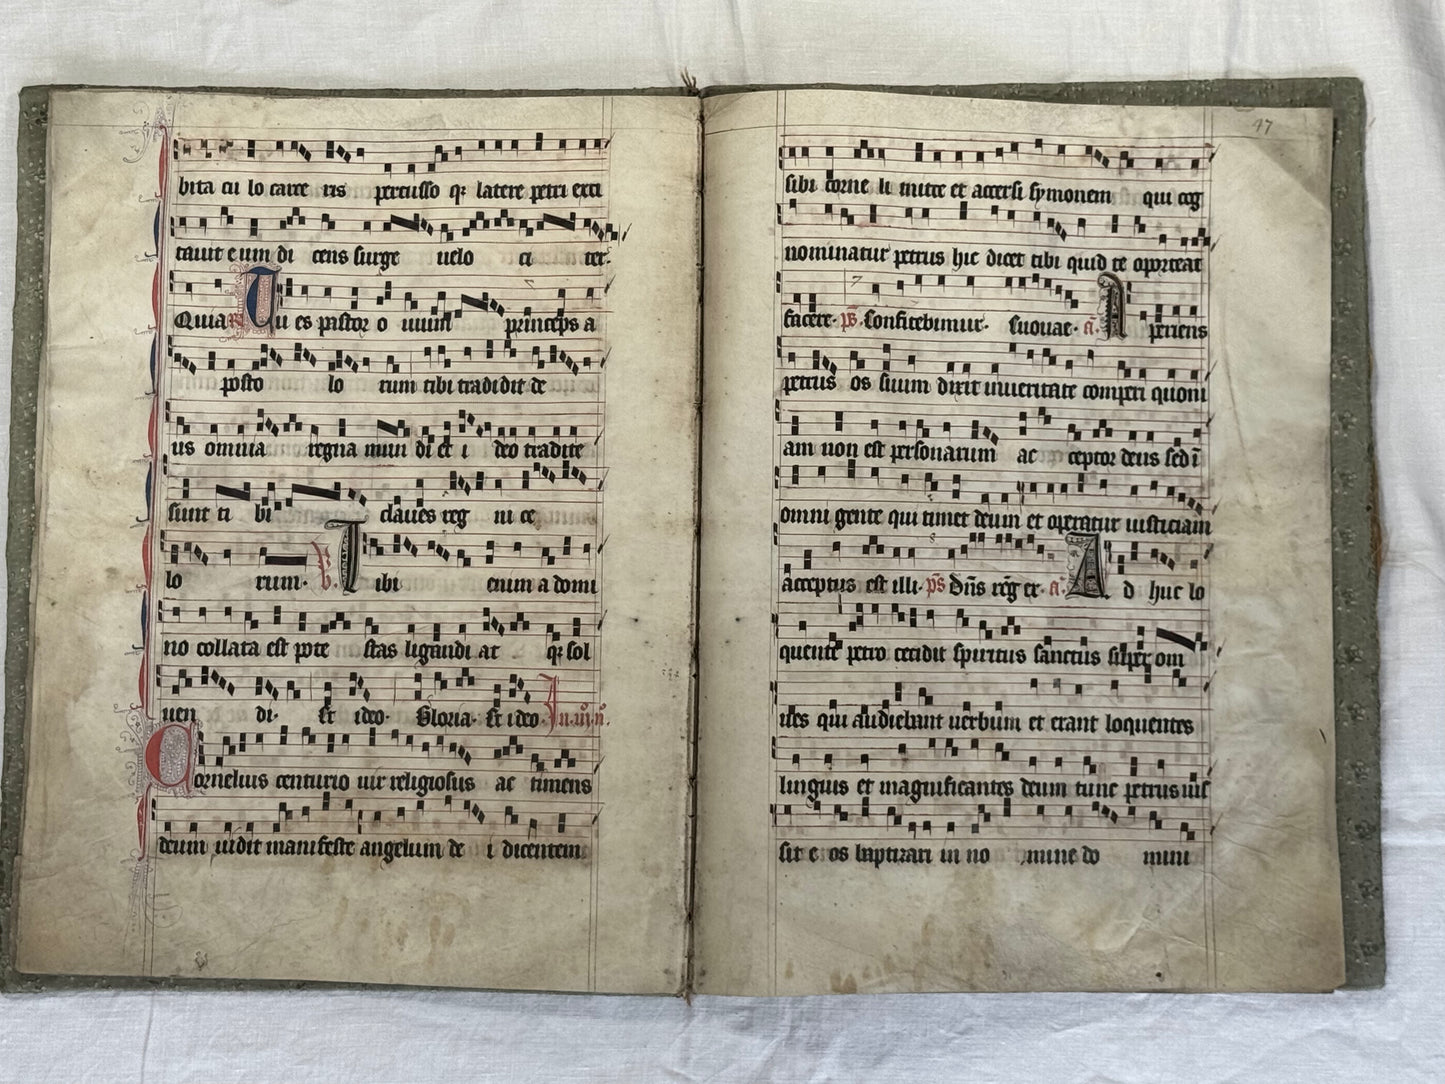 bita cu lo carce ris percusso q; latere petri exci
tauit eum di cens surge uelo ci ter.
Quia R. Tu es pastor o uium princeps a
posto lo rum tibi tradidit de
us omnia regna mun di et i deo tradite
sunt ti bi claues reg ni ce
lo rum. V. Tibi enim a domi
no collata est pote stas ligandi at q; sol
uen di. Et ideo. Gloria. Et ideo. In .iii. n.
Cornelius centurio uir religiosus ac timens
deum uidit manifeste angelum de i dicentem
47
sibi corne li mitte et accersi symonem qui cog
nominatur petrus hic dicet tibi quid te oporteat
facere. ps. Confitebimur. Euouae. a. Aperiens
petrus os suum dixit in ueritate comperi quoni
am non est personarum ac ceptor deus sed ī
omni gente qui timet deum et operatur iusticiam
acceptus est illi. ps. Dn̄s reḡ ex. a. Ad huc lo
quente petro cecidit spiritus sanctus super om
nes qui audiebant uerbum et erant loquentes
linguis et magnificantes deum tunc petrus iuſ
sit e os baptizari in no mine do mini